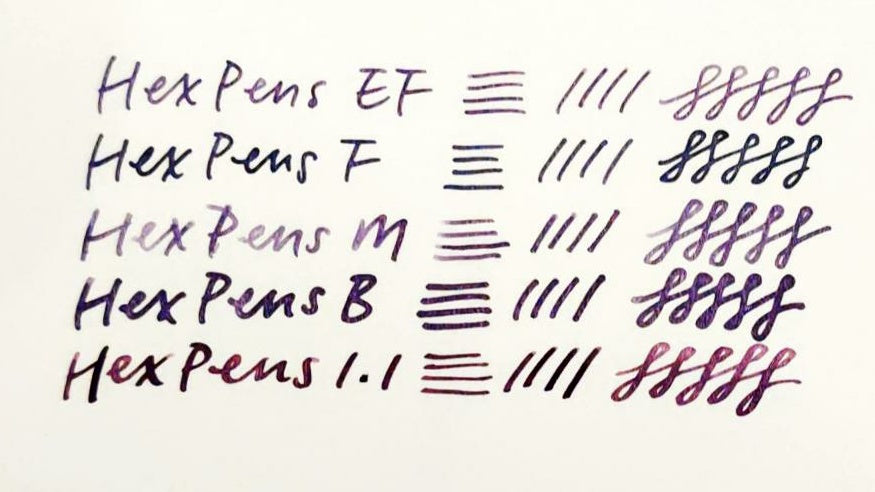 Hex Pens EF
Hex Pens F
Hex Pens M
Hex Pens B
Hex Pens 1.1